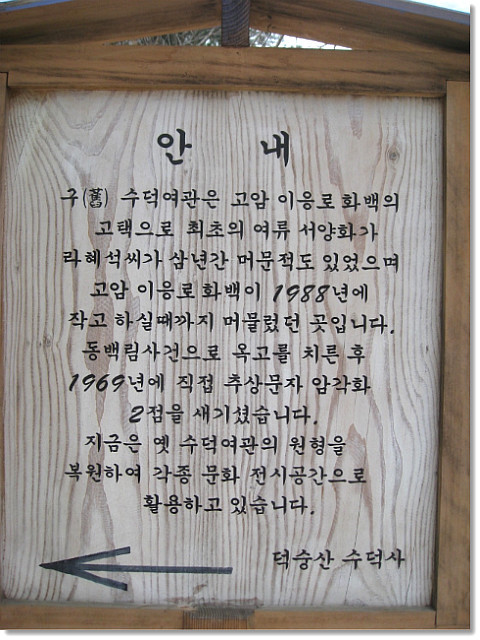 안 내
구(舊) 수덕여관은 고암 이응로화백의
고택으로 최초의 여류 서양화가
라혜석씨가 삼년간 머문적도 있었으며
고암 이응로화백이 1988년에
작고 하실때까지 머물렀던 곳입니다.
동백림사건으로 옥고를 치른 후
1969년에 직접 추상문자 암각화
2점을 새기셨습니다.
지금은 옛 수덕여관의 원형을
복원하여 각종 문화 전시공간으로
활용하고 있습니다.
덕숭산 수덕사